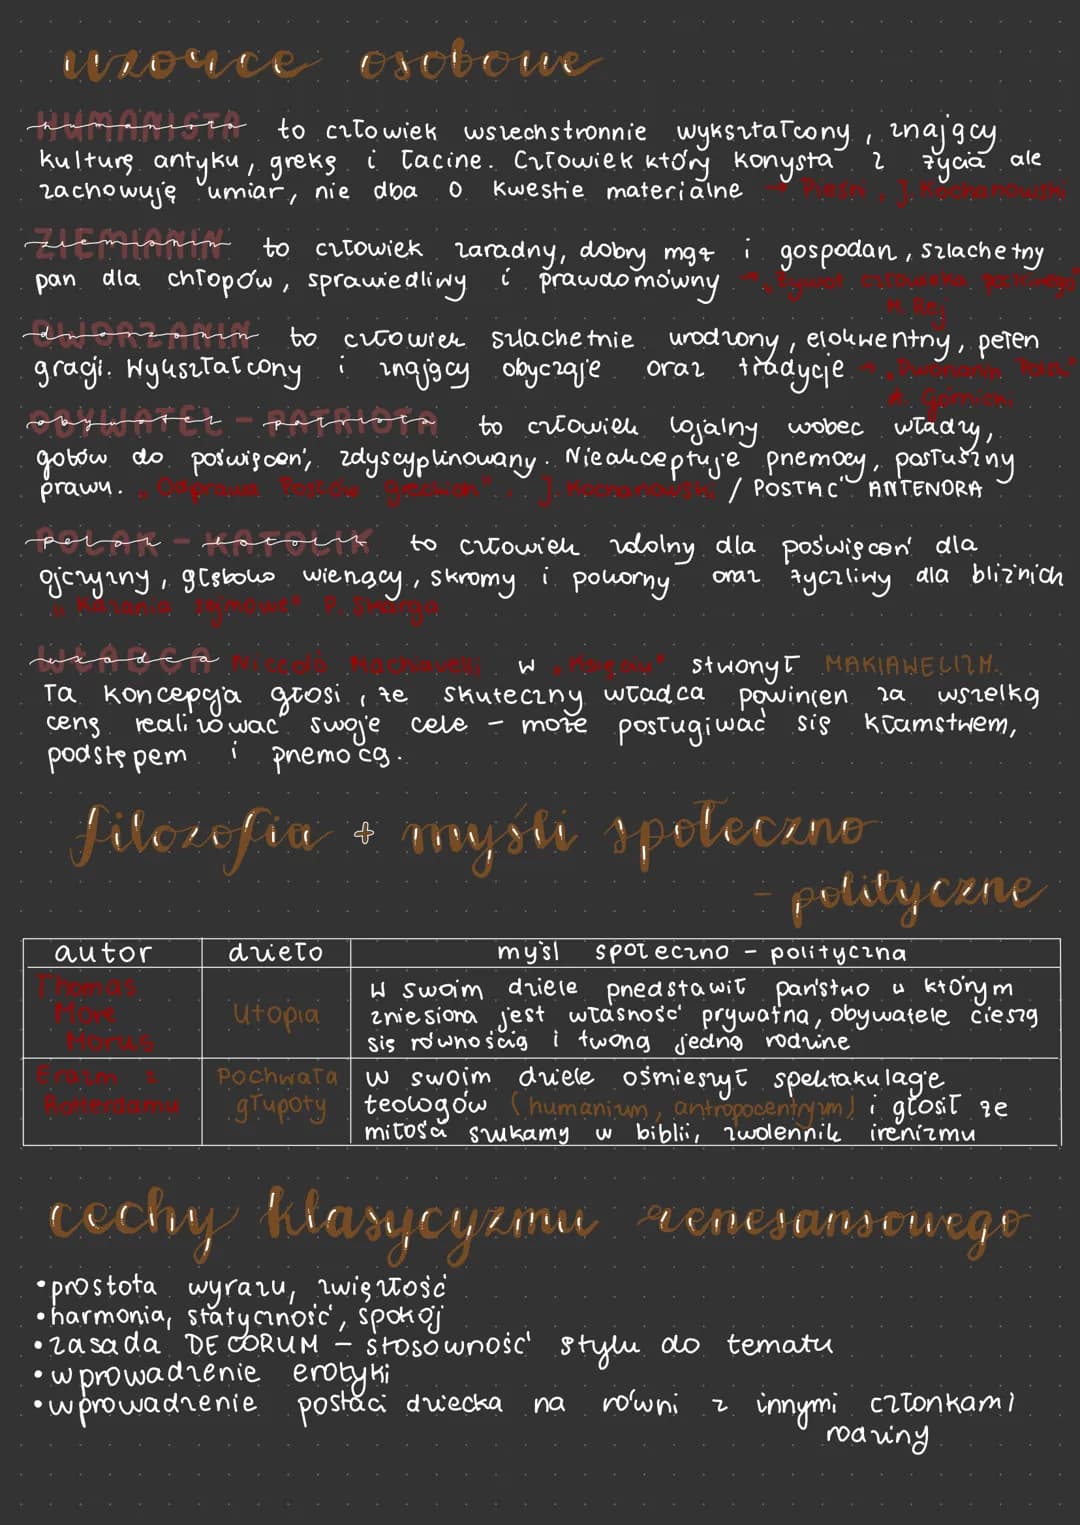 wzorce osobowe
HUMANISTA to człowiek wszechstronnie wykształcony, znający
kulturę antyku, grekę i łacine. Człowiek który korzysta z życia ale
zachowuję umiar, nie dba o kwestie materialne → Pieśni, J. Kochanowski
ZIEMIANIN to człowiek zaradny, dobry mąż i gospodarz, szlachetny
pan dla chłopów, sprawiedliwy i prawdomówny → "Żywot człowieka poczciwego"
M. Rej
DWORZANIN to człowiek szlachetnie urodzony, elokwentny, pełen
gracji. Wykształcony i znający obyczaje oraz tradycje → "Dworzanin Polski"
Ł. Górnicki
OBYWATEL - PATRIOTA to człowiek lojalny wobec władzy,
gotów do poświęceń, zdyscyplinowany. Nieakceptuje przemocy, posłuszny
prawu. "Odprawa Posłów greckich", J. Kochanowski / POSTAĆ ANTENORA
POLAK - KATOLIK to człowiek zdolny dla poświęceń dla
ojczyzny, głęboko wierzący, skromy i pokorny oraz życzliwy dla bliźnich
"Kazania sejmowe" P. Skarga
WŁADCA Niccolò Machiavelli w "Księciu" stworzył MAKIAWELIZM.
Ta koncepcja głosi, że skuteczny władca powinien za wszelką
cenę realizować swoje cele - może posługiwać się kłamstwem,
podstępem i przemocą.
filozofia + myśli społeczno
- polityczne
autor dzieło myśl społeczno - polityczna
Thomas
More
Morus
Utopia
W swoim dziele przedstawił państwo w którym
zniesiona jest własność prywatna, obywatele cieszą
się równością i tworzą jedną rodzine
Erazm z
Rotterdamu
Pochwała
głupoty
W swoim dziele ośmieszył spektakulacje
teologów (humanizm, antropocentryzm) i głosił że
miłości szukamy w biblii, zwolennik irenizmu
cechy klasycyzmu renesansowego
• prostota wyrazu, zwięzłość
• harmonia, statyczność, spokój
• zasada DECORUM - stosowność stylu do tematu
• wprowadzenie erotyki
• wprowadzenie postaci dziecka na równi z innymi członkami
rodziny